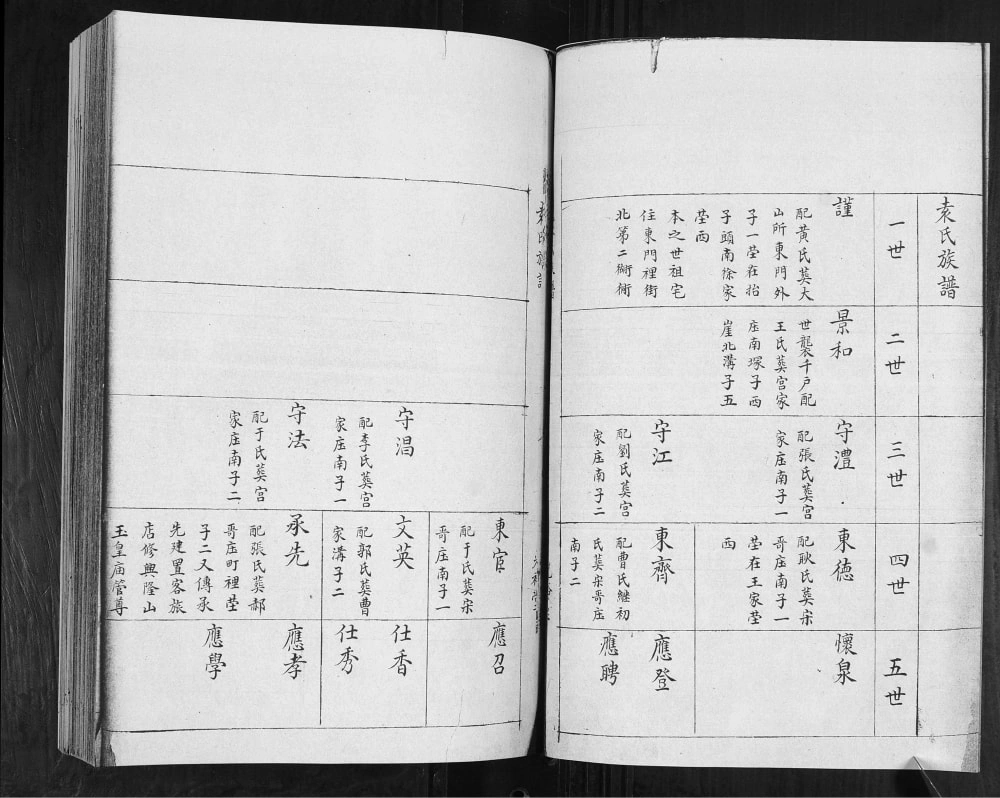 袁氏族譜
一世
二世
三世
四世
五世
謹
配黃氏葬大
山所東門外
子一塋在抬
子頭南徐家
塋西
本之世祖宅
住東門裡街
北第二衚衕
景和
世襲千戶配
王氏葬宫家
庄南塚子西
崖北溝子五
守澧
配張氏葬宫
家庄南子一
守江
配劉氏葬宫
家庄南子二
東德
配耿氏葬宋
哥庄南子一
塋在王家塋
西
東齊
配曹氏継初
氏葬宋哥庄
南子二
懷泉
應登
應聘
袁氏族譜
守淐
配李氏葬宫
家庄南子一
守法
配于氏葬宫
家庄南子二
東宦
配于氏葬宋
哥庄南子一
文英
配郭氏葬曹
家溝子二
承先
配張氏葬郝
哥庄町裡塋
子二又傳承
先建置客旅
店修興隆山
玉皇庙管尊
應召
仕香
仕秀
應孝
應學